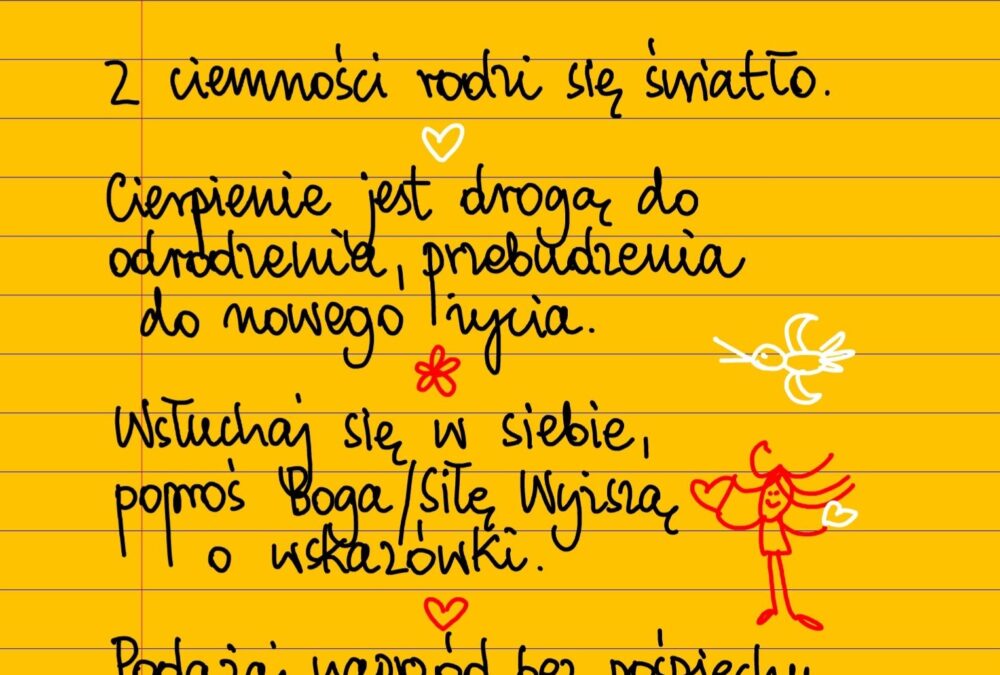 Z ciemności rodzi się światło.
Cierpienie jest drogą do
odrodzenia, przebudzenia
do nowego życia.
Wsłuchaj się w siebie,
poproś Boga/Siłę Wyższą
o wskazówki.
Podążaj naprzód bez pośpiechu